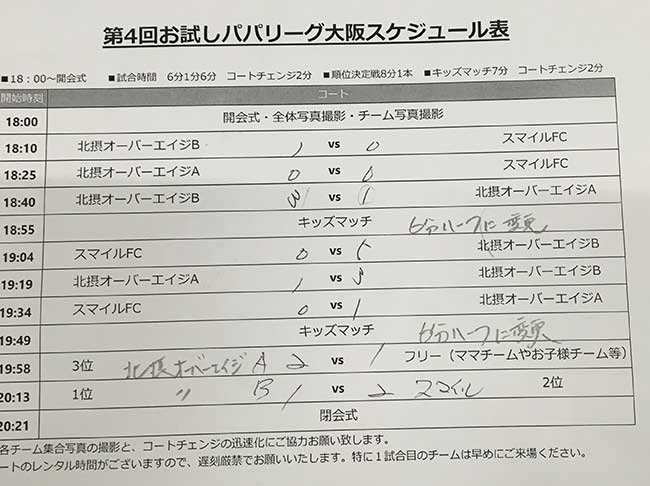 第4回お試しパパリーグ大阪スケジュール表
■18：00～開会式 ■試合時間 6分1分6分 コートチェンジ2分 ■順位決定戦8分1本 ■キッズマッチ7分 コートチェンジ2分
開始時刻 コート
18:00 開会式・全体写真撮影・チーム写真撮影
18:10 北摂オーバーエイジB 1 vs 0 スマイルFC
18:25 北摂オーバーエイジA 0 vs 0 スマイルFC
18:40 北摂オーバーエイジB 3 vs 1 北摂オーバーエイジA
18:55 キッズマッチ 6分ハーフに変更
19:04 スマイルFC 0 vs 北摂オーバーエイジB
19:19 北摂オーバーエイジA 1 vs 北摂オーバーエイジB
19:34 スマイルFC 0 vs 1 北摂オーバーエイジA
19:49 キッズマッチ 6分ハーフに変更
19:58 3位 北摂オーバーエイジA 2 vs 1 フリー（ママチームやお子様チーム等）
20:13 1位 〃 B 1 vs 2 スマイル 2位
20:21 閉会式
各チーム集合写真の撮影と、コートチェンジの迅速化にご協力お願い致します。
ートのレンタル時間がございますので、遅刻厳禁でお願いいたします。特に１試合目のチームは早めにご来場ください。